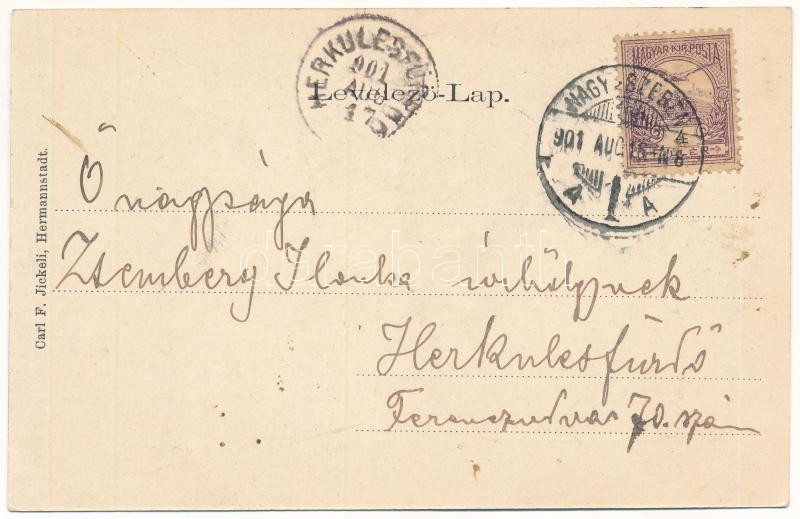 HERKULESFÜRDŐ
901
AUG
17
Levelező-Lap.
MAGYAR KIR. POSTA
NAGY-SZEBEN
901 AUG 16
1 A
Carl F. Jickeli, Hermannstadt.
Ő nagysága
Zternberg Ilonka úrhölgynek
Herkulesfürdő
Ferencz udvar 70. szám
darabanth